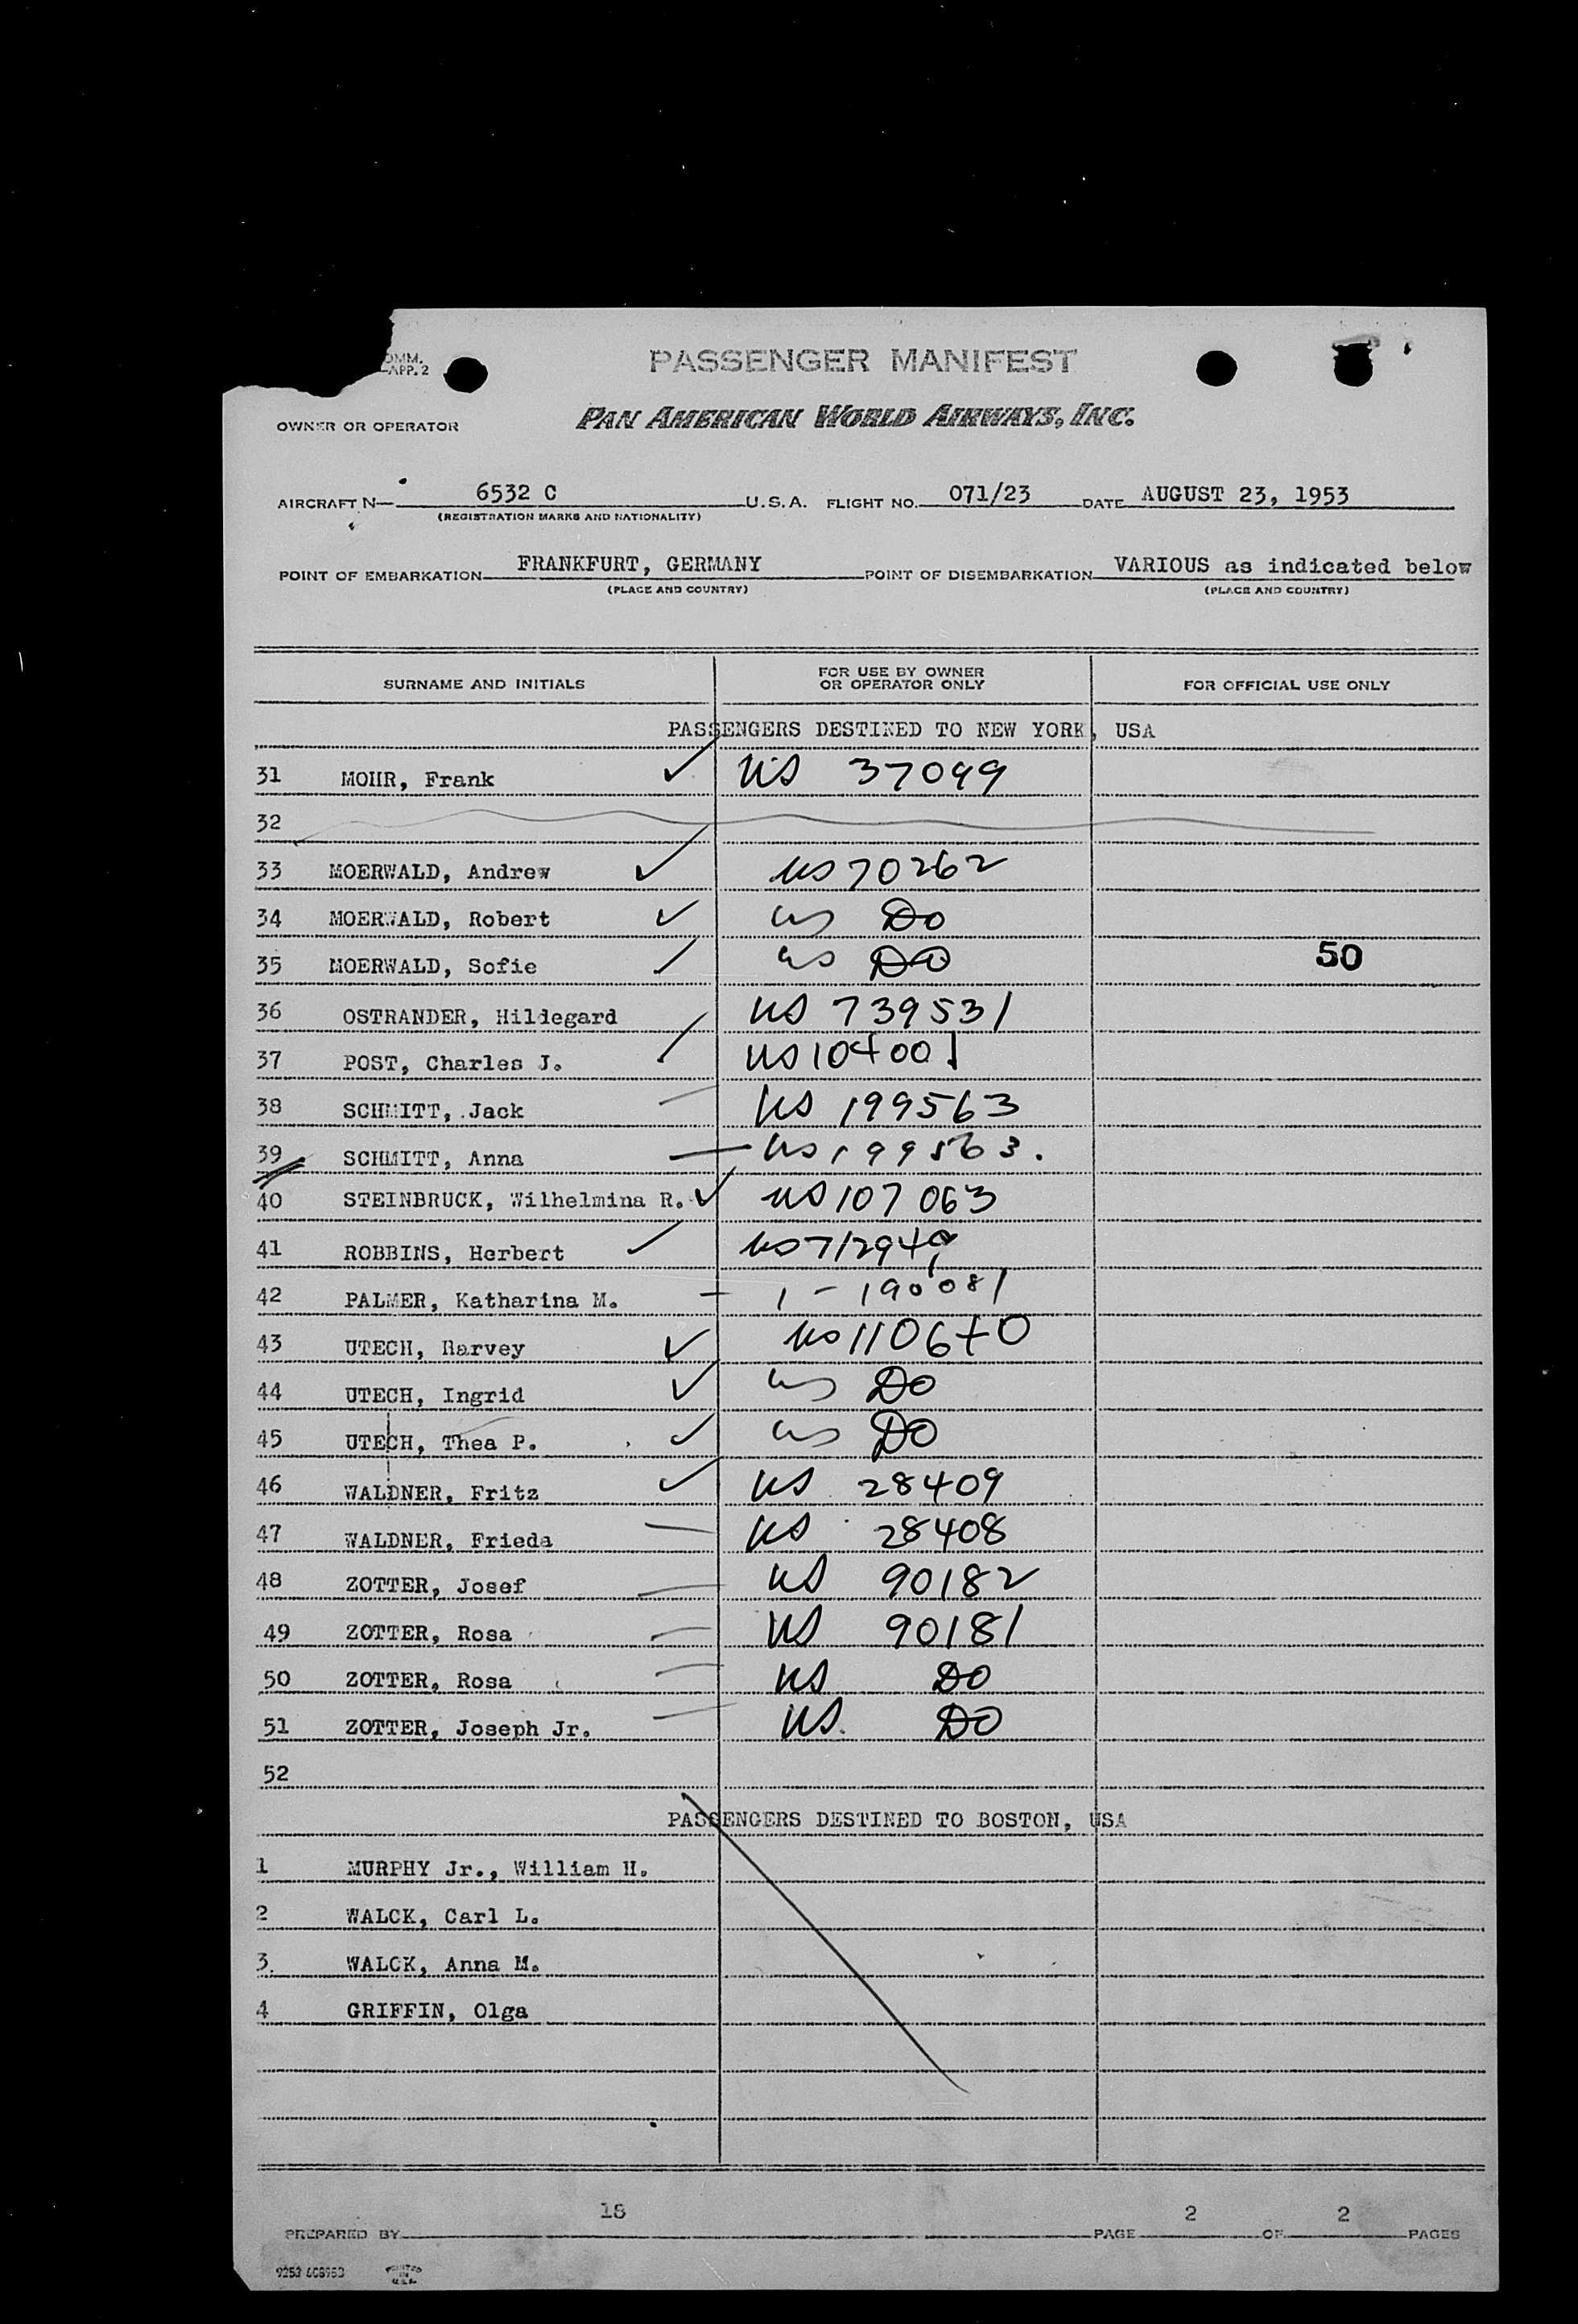 OMM.
APP. 2
PASSENGER MANIFEST
OWNER OR OPERATOR PAN AMERICAN WORLD AIRWAYS, INC.
AIRCRAFT N— 6532 C U.S.A. FLIGHT NO. 071/23 DATE AUGUST 23, 1953
(REGISTRATION MARKS AND NATIONALITY)
POINT OF EMBARKATION FRANKFURT, GERMANY POINT OF DISEMBARKATION VARIOUS as indicated below
(PLACE AND COUNTRY) (PLACE AND COUNTRY)
SURNAME AND INITIALS FOR USE BY OWNER OR OPERATOR ONLY FOR OFFICIAL USE ONLY
PASSENGERS DESTINED TO NEW YORK, USA
31 MOHR, Frank ✓ US 37099
32
33 MOERWALD, Andrew ✓ US 70262
34 MOERWALD, Robert ✓ US DO
35 MOERWALD, Sofie US DO 50
36 OSTRANDER, Hildegard US 739531
37 POST, Charles J. US 104001
38 SCHMITT, Jack US 199563
39 SCHMITT, Anna US 199563.
40 STEINBRUCK, Wilhelmina R. ✓ US 107063
41 ROBBINS, Herbert ✓ US 712949
42 PALMER, Katharina M. 1 - 190081
43 UTECH, Harvey ✓ US 110640
44 UTECH, Ingrid ✓ US DO
45 UTECH, Thea P. ✓ US DO
46 WALDNER, Fritz ✓ US 28409
47 WALDNER, Frieda US 28408
48 ZOTTER, Josef US 90182
49 ZOTTER, Rosa US 90181
50 ZOTTER, Rosa US DO
51 ZOTTER, Joseph Jr. US. DO
52
PASSENGERS DESTINED TO BOSTON, USA
1 MURPHY Jr., William H.
2 WALCK, Carl L.
3. WALCK, Anna M.
4 GRIFFIN, Olga
PREPARED BY 18 PAGE 2 OF 2 PAGES
PRINTED IN U.S.A.